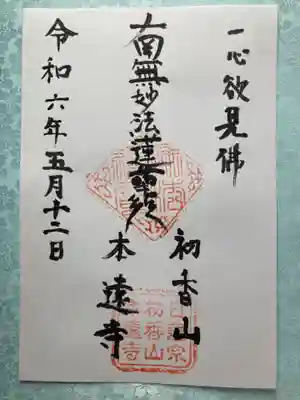 一心欲見佛
南無妙法蓮華経
初香山
本遠寺
令和六年五月十二日